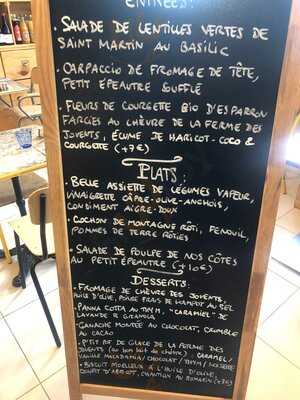 ENTRÉES:
• SALADE DE LENTILLES VERTES DE
SAINT MARTIN AU BASILIC
• CARPACCIO DE FROMAGE DE TÊTE,
PETIT ÉPEAUTRE SOUFFLÉ
• FLEURS DE COURGETTE BIO D'ESPARRON
FARCIES AU CHÈVRE DE LA FERME DES
JOVENTS, ÉCUME DE HARICOT-COCO &
COURGETTE (+7€)
PLATS:
• BELLE ASSIETTE DE LÉGUMES VAPEUR,
VINAIGRETTE CÂPRE-OLIVE-ANCHOIS,
CONDIMENT AIGRE-DOUX
• COCHON DE MONTAGNE RÔTI, FENOUIL,
POMMES DE TERRE RÔTIES
• SALADE DE POULPE DE NOS CÔTES
AU PETIT ÉPEAUTRE (+10€)
DESSERTS:
• FROMAGE DE CHÈVRE DES JOVENTS,
HUILE D'OLIVE, POIVRE FRAIS DE KAMPOT AU SEL
• PANNA COTTA AU THYM, "CARAMEL" DE
LAVANDE &
• GANACHE MONTÉE AU CHOCOLAT, CRUMBLE
AU CACAO
• PTIT POT DE GLACE DE LA FERME DES
JOVENTS (au bon lait de chèvre): CARAMEL/
VANILLE MACADAMIA/ CHOCOLAT/ THYM/ NOISETTE
• BISCUIT MOELLEUX À L'HUILE D'OLIVE,
CONFIT D'ABRICOT, CHANTILLY AU ROMARIN